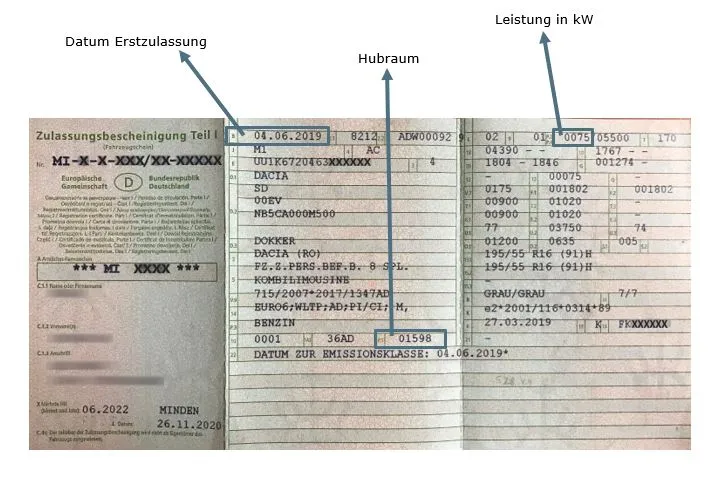 Leistung in kW
Datum Erstzulassung
Hubraum
Zulassungsbescheinigung Teil I
(Fahrzeugschein)
Nr. MI-X-X-XXX/XX-XXXXX
Europäische Gemeinschaft
D
Bundesrepublik Deutschland
*** MI XXXX ***
C.1.1 Name oder Firmenname
C.1.2 Vorname(n)
C.1.3 Anschrift
06.2022 MINDEN
26.11.2020
04.06.2019 8212 ADW00092 9
M1 AC
UU1K6720463XXXXXX 4
DACIA
SD
00EV
NB5CA000M500
DOKKER
DACIA (RO)
FZ.Z.PERS.BEF.B. 8 SPL.
KOMBILIMOUSINE
715/2007*2017/1347AD
EURO6;WLTP;AD;PI/CI; M,
BENZIN
0001 36AD 01598
DATUM ZUR EMISSIONKLASSE: 04.06.2019*
02 01 0075/05500 170
04390 - - 1767 - -
1804 - 1846 001274 -
- 00075 -
0175 001802 001802
00900 01020 -
00900 01020 -
77 03750 74
01200 0635 005
195/55 R16 (91)H
195/55 R16 (91)H
-
GRAU/GRAU 7/7
e2*2001/116*0314*89
27.03.2019 K FKXXXXXX
-